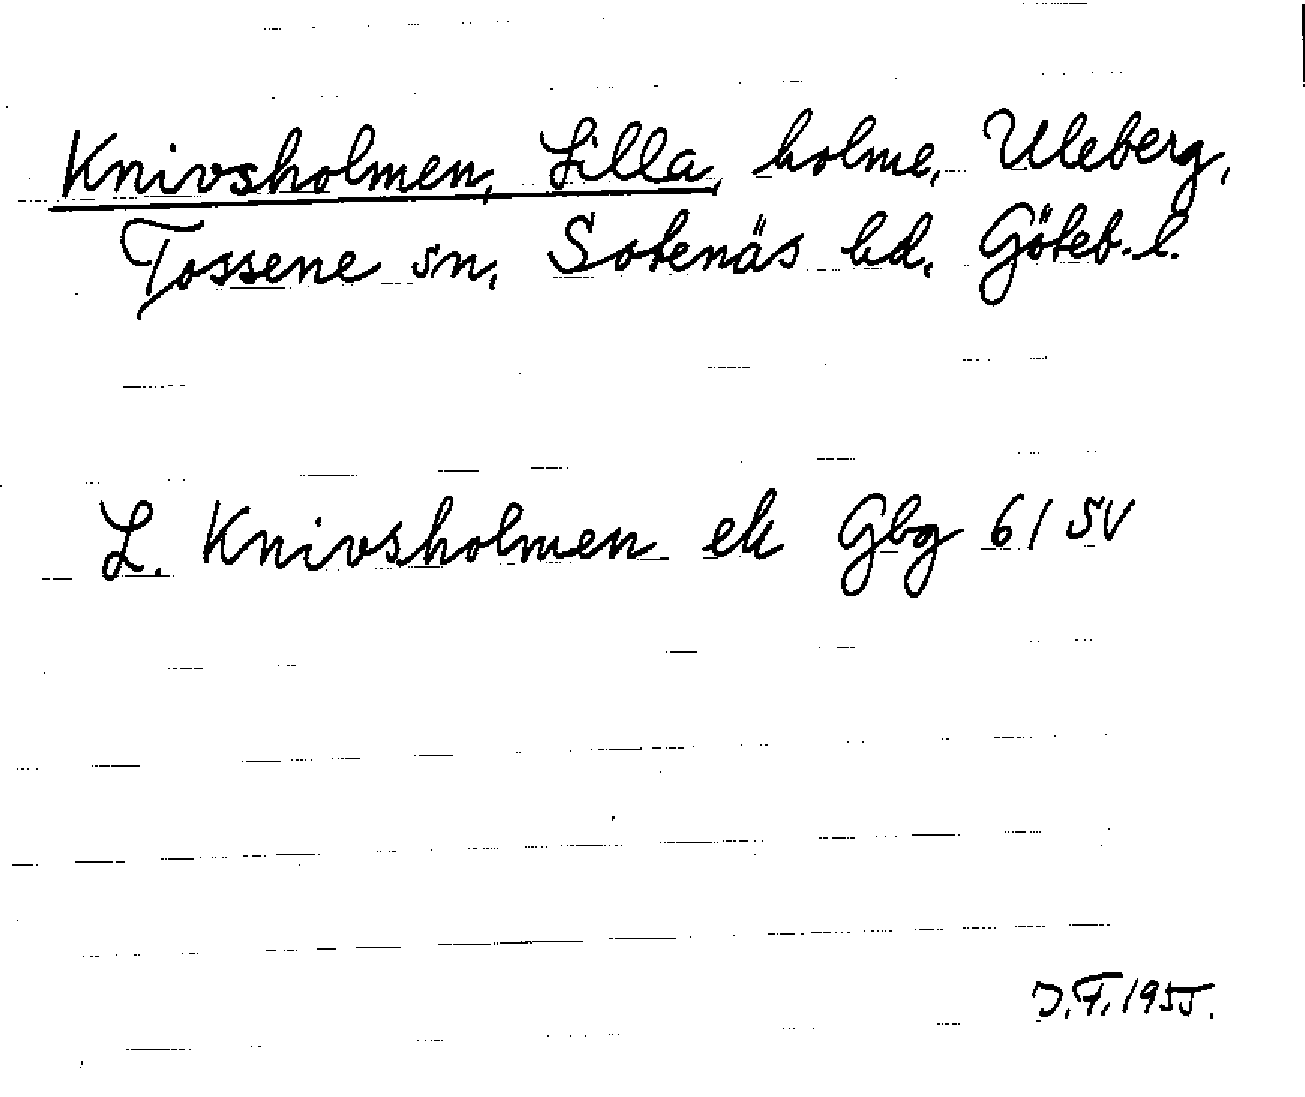 Knivsholmen, Lilla, holme, Uleberg,
Tossene sn, Sotenäs hd, Göteb. l.
L. Knivsholmen ek Gbg 61 SV
J.F. 1955.